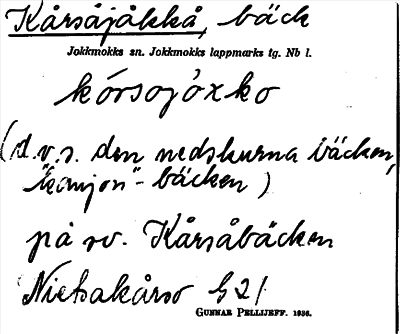 Kårsåjåkkå, bäck
Jokkmokks sn. Jokkmokks lappmarks tg. Nb l.
kórsojòxko
(d.v.s. den nedskurna bäcken,
"kanjon"-bäcken)
på sv. Kårsåbäcken
Nietsakårso G 21
GUNNAR PELLIJEFF. 1936.